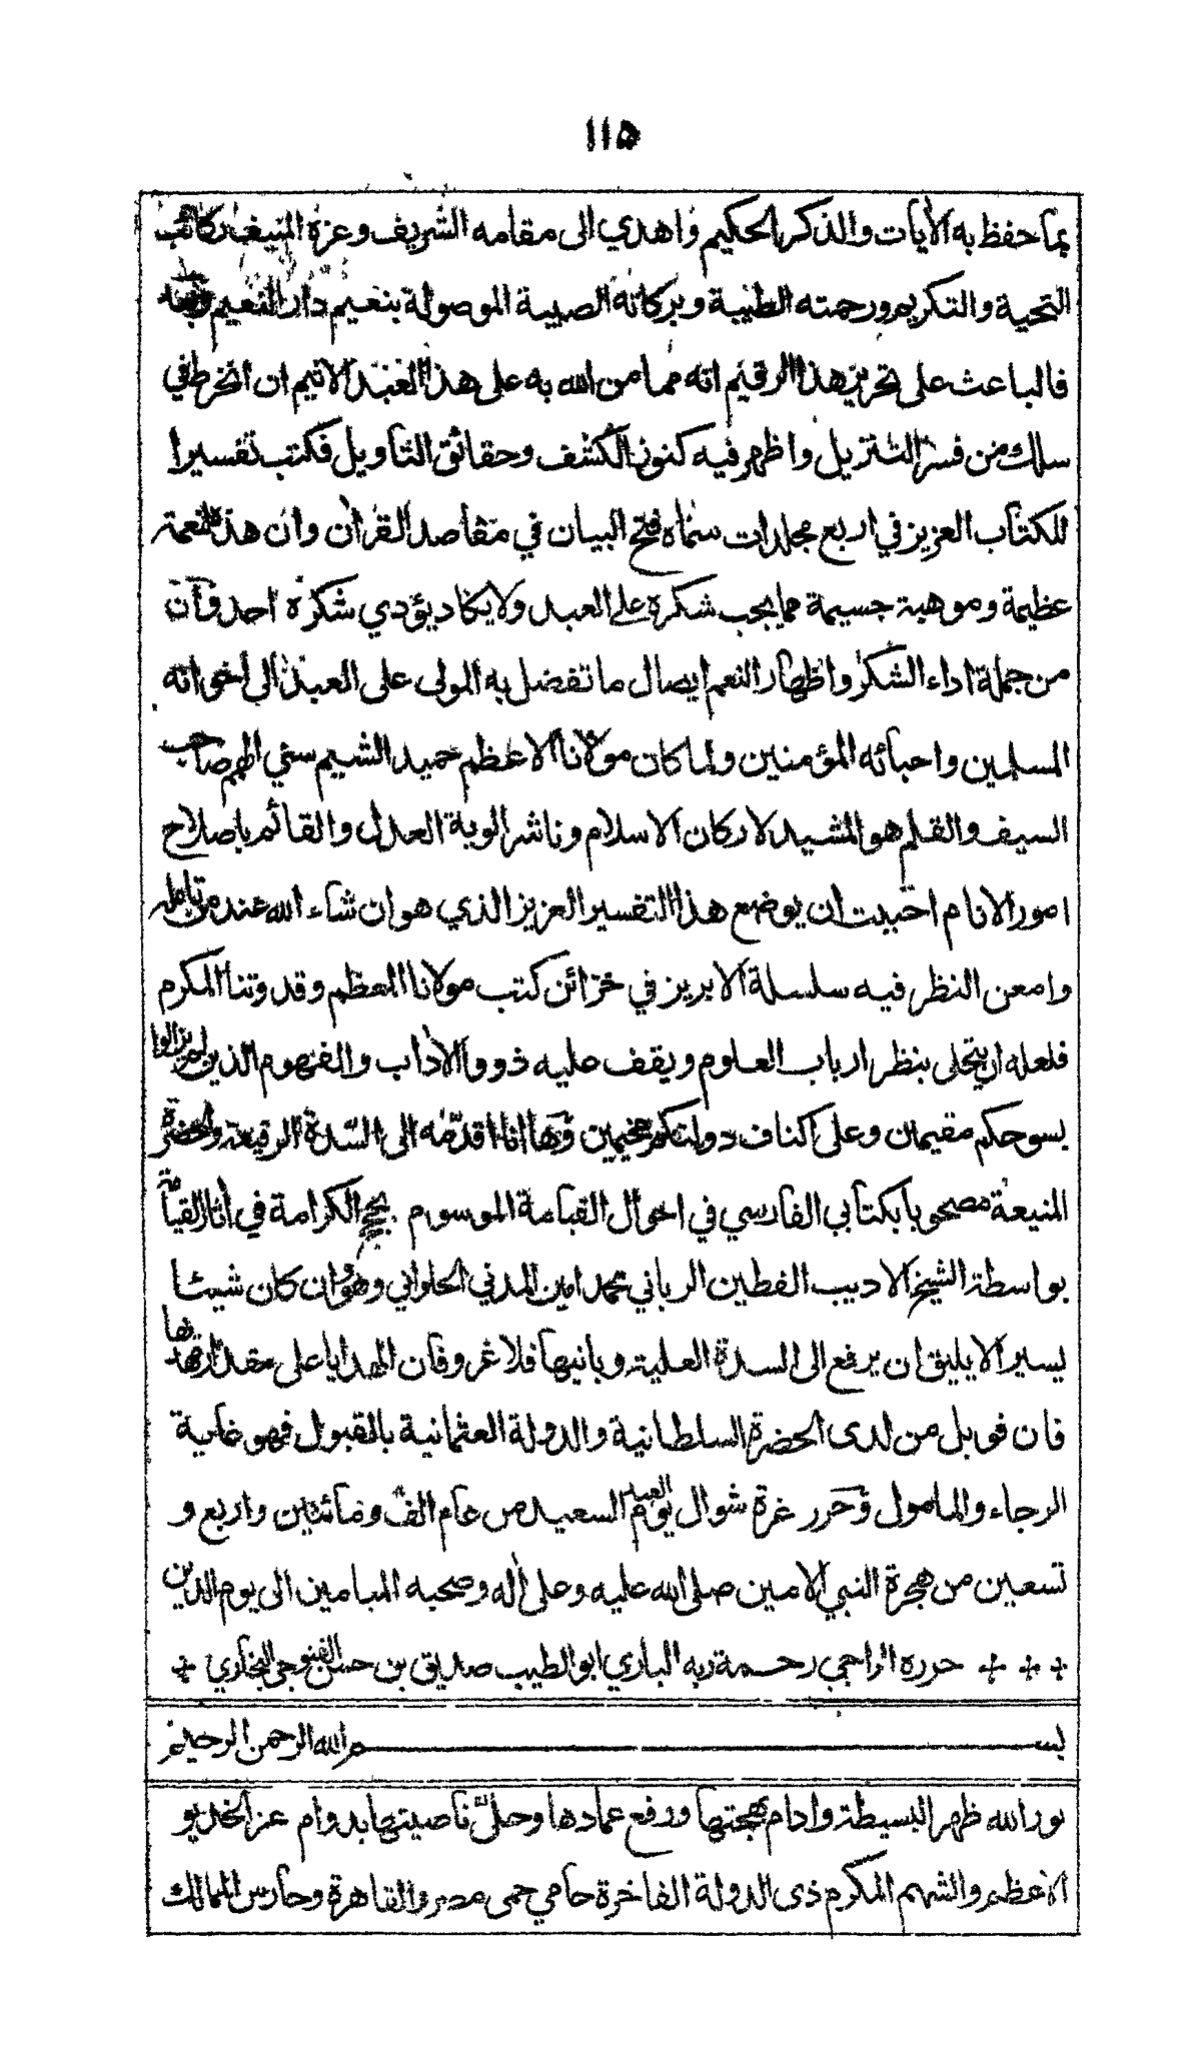 ١١٥
بما حفظ به الأيات والذكر الحكيم واهدي الى مقامه الشريف وعزه المنيف ركائب
التحية والتكريم ورحمته الطيبة وبركاته الصيبة الموصولة بنعيم دار النعيم وبعد
فالباعث على تحرير هذا الرقيم انه مما من الله به على هذا العبد الاثيم ان انخرط في
سلك من فسر التنزيل واظهر فيه كنوز الكشف وحقائق التاويل فكتب تفسيرا
للكتاب العزيز في اربع مجلدات سماه فتح البيان في مقاصد القران وان هذه لنعمة
عظيمة وموهبة جسيمة مما يجب شكره على العبد ولا يكاد يؤدي شكره احد وان
من جملة اداء الشكر واظهار النعم ايصال ما تفضل به المولى على العبد الى اخوانه
المسلمين واحبائه المؤمنين ولما كان مولانا الاعظم حميد الشيم سني الهمم صاحب
السيف والقلم هو المشيد لاركان الاسلام وناشر الوية العدل والقائم باصلاح
امور الانام احببت ان يوضع هذا التفسير العزيز الذي هو ان شاء الله عند من تامله
وامعن النظر فيه سلسلة الابريز في خزائن كتب مولانا المعظم وقدوتنا المكرم
فلعله ان يتحلى بنظر ارباب العلوم ويقف عليه ذوو الأداب والفهوم الذين لم يزالوا
بسوحكم مقيمين وعلى اكناف دولتكم مخيمين وها انا اقدمه الى السدة الرفيعة والحضرة
المنيعة مصحوبا بكتابي الفارسي في احوال القيامة الموسوم بحجج الكرامة في اثار القيامة
بواسطة الشيخ الاديب الفطين الرباني محمد امين المدني الحلواني وهو وان كان شيئا
يسيرا لا يليق ان يرفع الى السدة العلية وبانيها فلا غرو فان الهدايا على مقدار مهديها
فان قوبل من لدى الحضرة السلطانية والدولة العثمانية بالقبول فهو غاية
الرجاء والمامول وحرر غرة شوال يوم العيد السعيد من عام الف ومائتين واربع و
تسعين من هجرة النبي الامين صلى الله عليه وعلى أله وصحبه الميامين الى يوم الدين
حرره الراجي رحمة ربه الباري ابو الطيب صديق بن حسن القنوجي البخاري
بسم الله الرحمن الرحيم
نور الله ظهر البسيطة وادام بهجتها ورفع عمادها وحلى ناصيتها بدوام عز الخديو
الاعظم والشهم المكرم ذى الدولة الفاخرة حامي حمى مصر والقاهرة وحارس الممالك